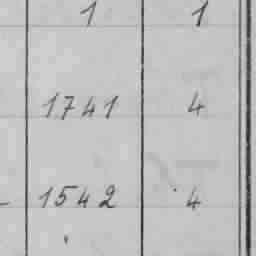 1 1
1741 4
1542 4